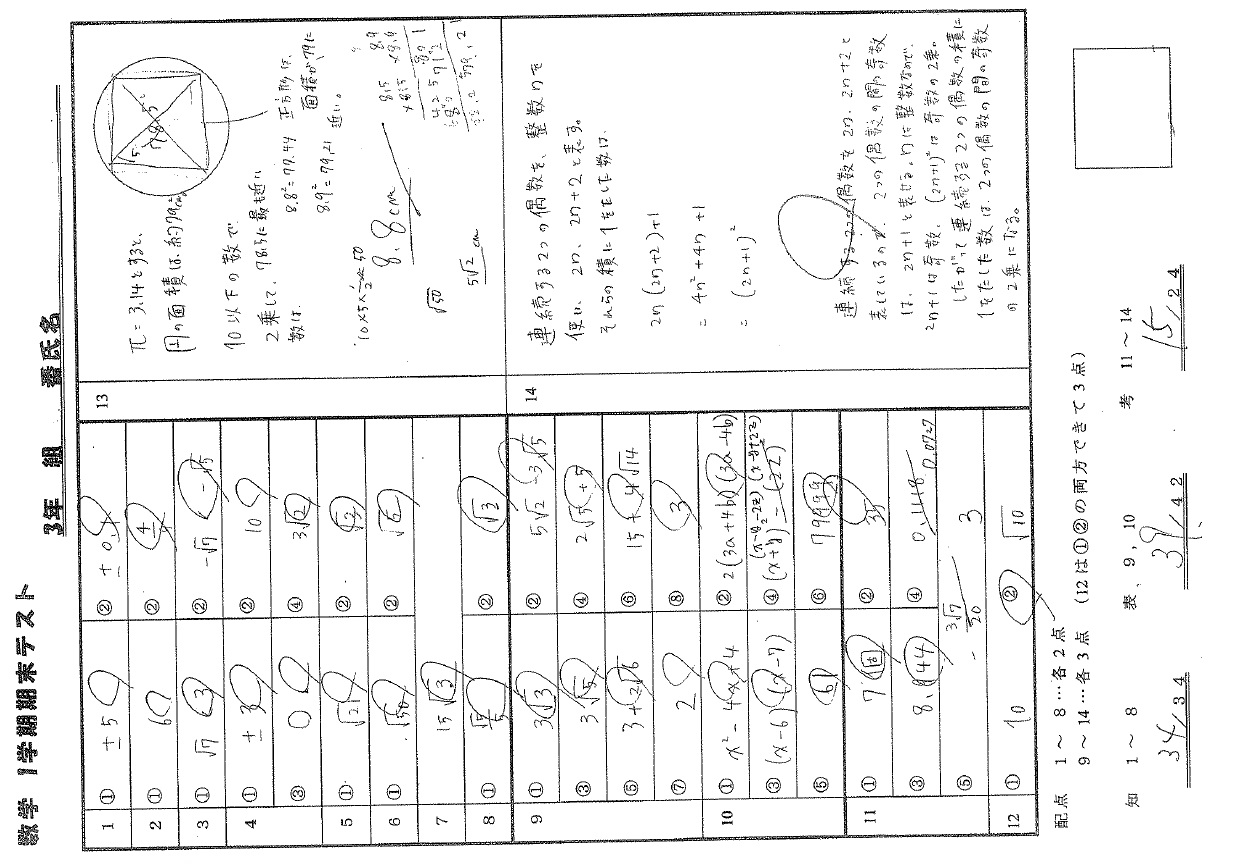 数学 1学期期末テスト
3年 組 番氏名
1 ① ±5 ② ±0.
2 ① 6 ②
3 ① √7 3 ② -√7 -√5
4 ① ±3 ② 10
③ 0 ④ 3√2
5 ① √21 ② √3
6 ① √50 ② √6
7 15√3
8 ① √5/5 ② √3
9 ① 3√3 ② 5√2-3√5
③ 3√5 ④ 2√5+5
⑤ 3+2√6 ⑥ 15+4√14
⑦ 2 ⑧ 3
10 ① x²-4x+4 ② 2(3a+4b)(3a-4b)
③ (x-6)(x-7) ④ (x-y-2z)(x-y+2z)
(x+y)²-(2z)²
⑤ 61 ⑥ 79999
11 ① 7 個 ② 35
③ 8.944 ④ 0.1448
0.0727
⑤ 3√7/20 3
12 ① 10 ② √10
13
π=3.14とすると、
円の面積は、約79cm²
10以下の数で
2乗して、78.5に最も近い
数は、
8.8²=77.44
8.9²=79.21
正方形は、
面積が79に
近い。
10×5×1/2 50
8.8cm
√50
5√2cm
78.5
8.5
×8.5
425
8.9
×8.9
801
712
79.21
14
連続する2つの偶数を、整数nを
使い、2n、2n+2と表す。
それらの積に1をたした数は、
2n(2n+2)+1
=4n²+4n+1
=(2n+1)²
連続する2つの偶数を2n、2n+2と
表しているので、2つの偶数の間の奇数
は、2n+1と表せる。nは整数なので、
2n+1は奇数、(2n+1)²は奇数の2乗。
したがって連続する2つの偶数の積に
1をたした数は、2つの偶数の間の奇数
の2乗になる。
配点 1~8…各2点
9~14…各3点 (12は①②の両方できて3点)
知 1~8 表、9,10 考 11~14
34/34 39/42 15/24